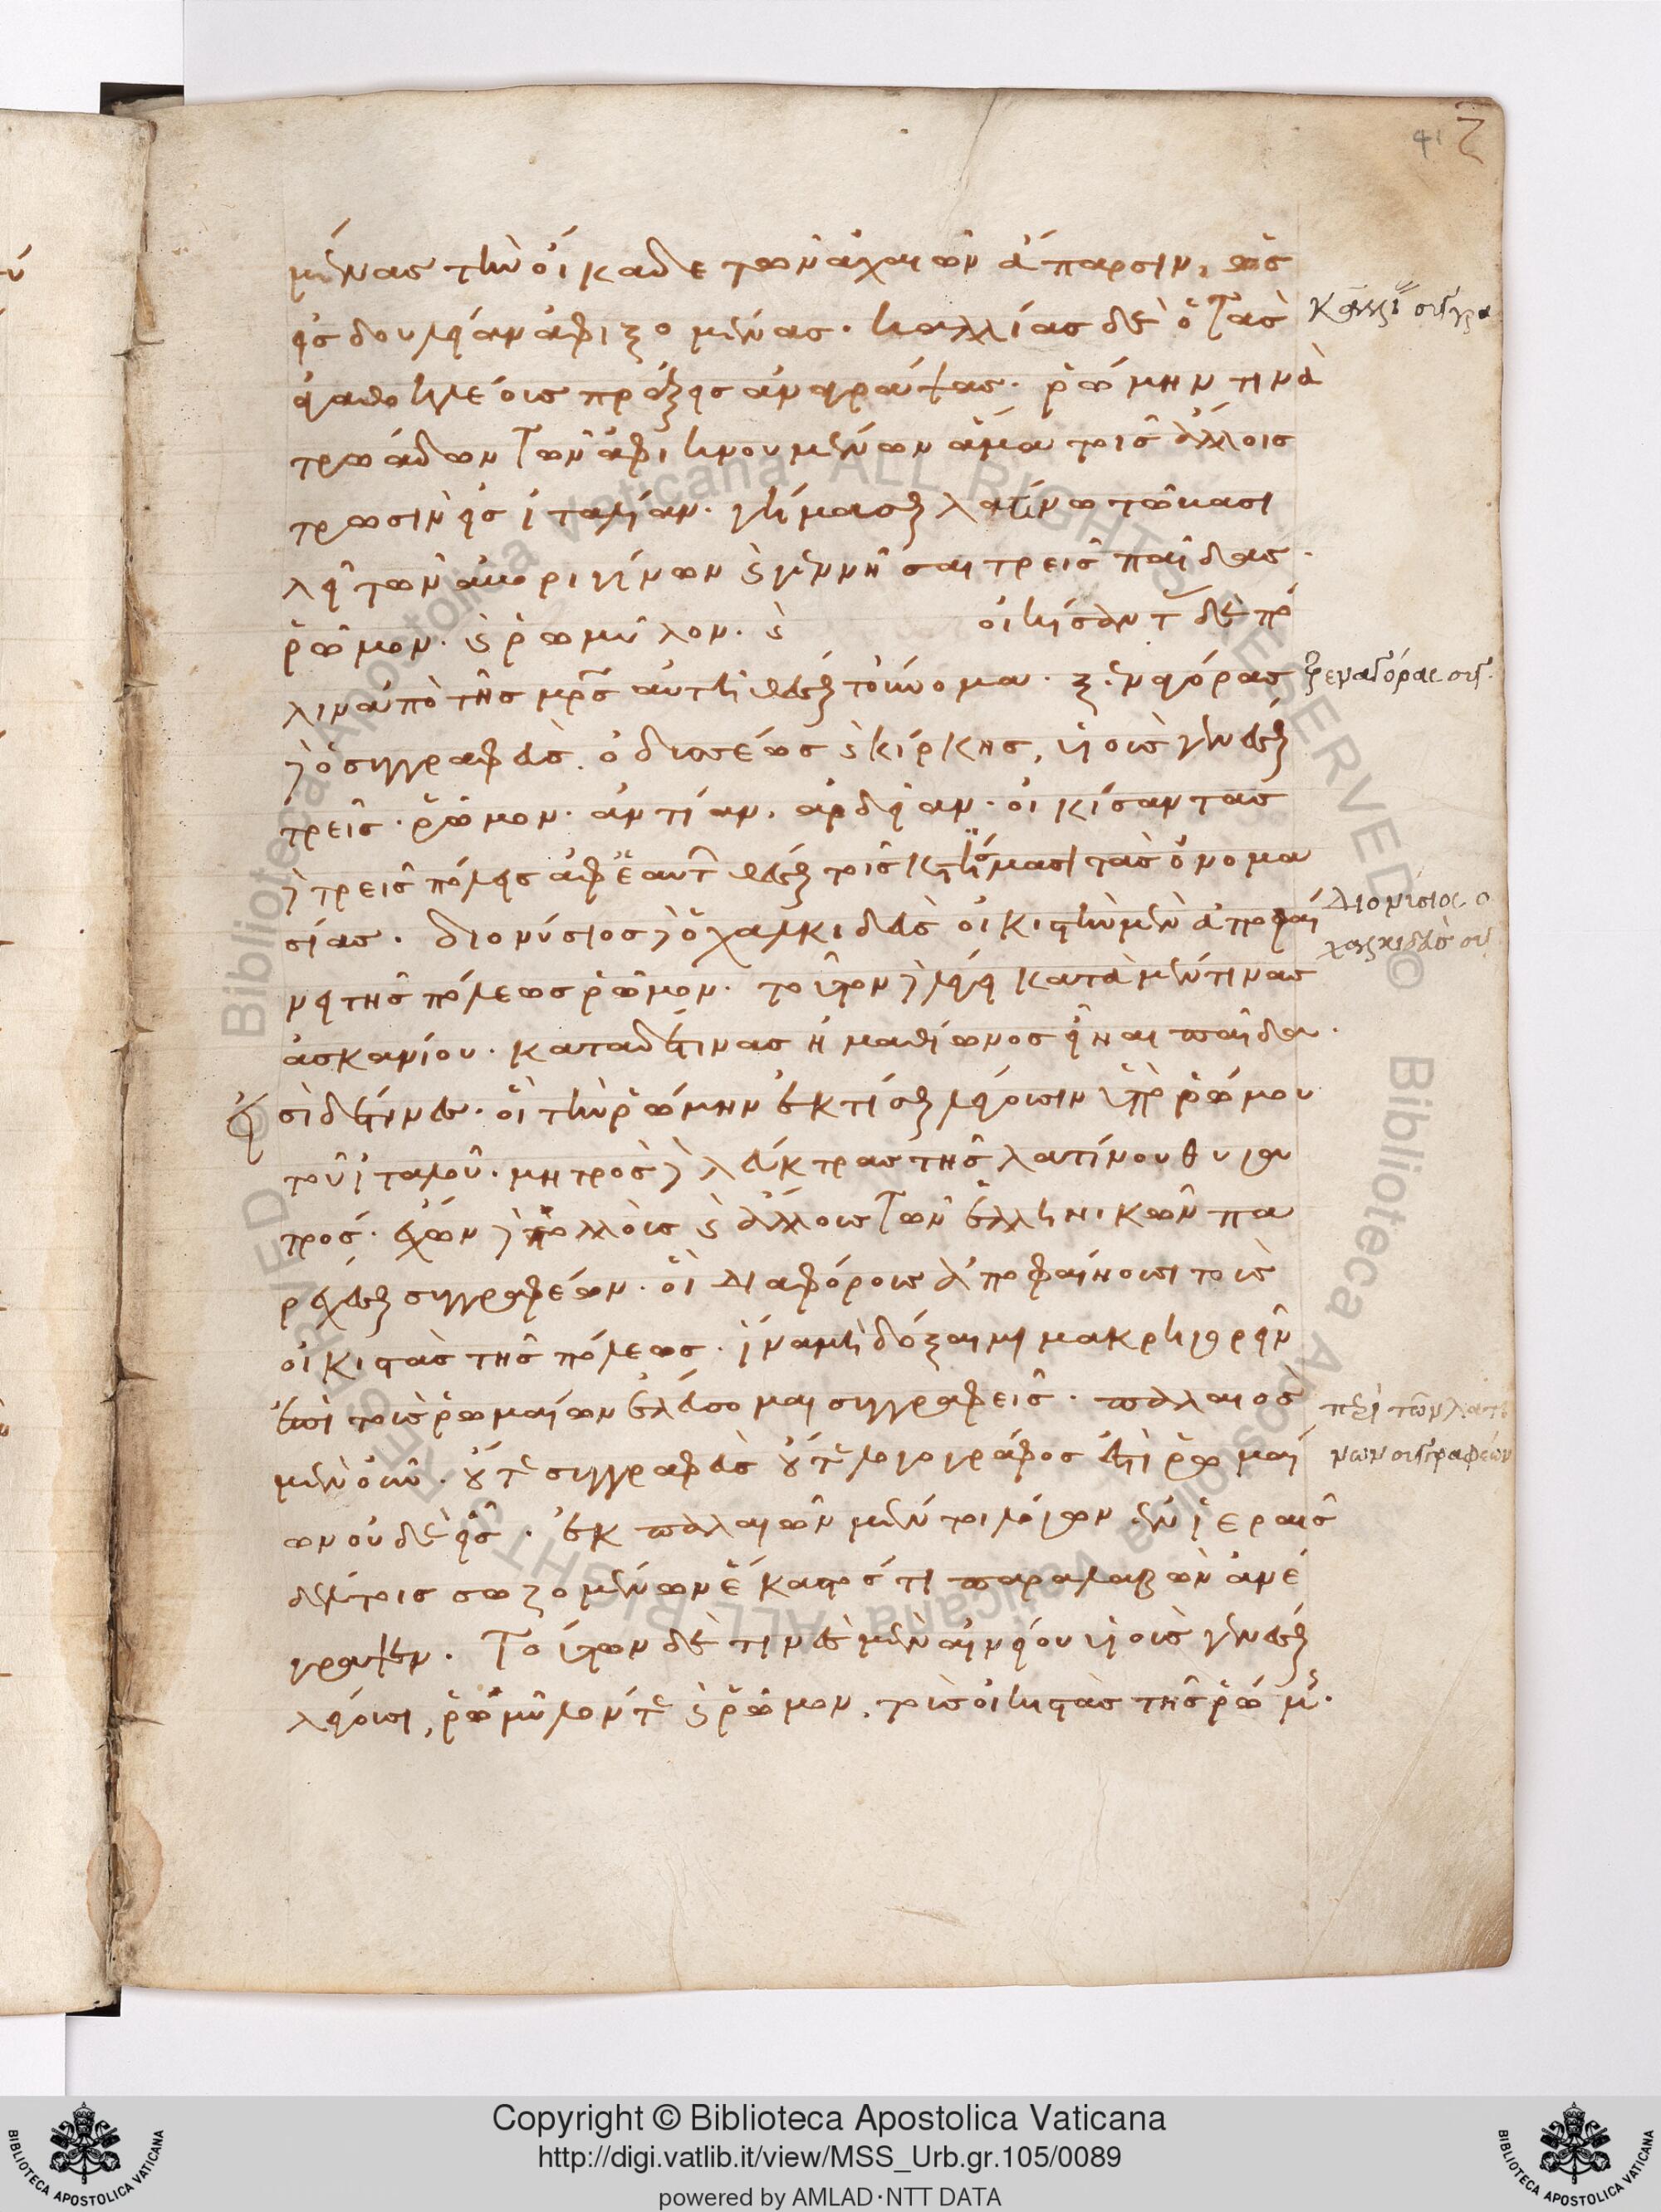 μένας τὴν οἴκαδε τῶν ἀχαιῶν ἄπαρσιν, ὡς
εἰς δουλείαν ἀφιξομένας. καλλίας δὲ ὁ τὰς
ἀγαθοκλέους πράξεις ἀναγράψας. ῥώμην τινὰ
τρωάδων τῶν ἀφικνουμένων ἅμα τοῖς ἄλλοις
τρωσὶν εἰς ἰταλίαν. γήμασθαι λατίνω τῶ βασι
λεῖ τῶν ἀβοριγίνων καὶ γεννῆσαι τρεῖς παῖδας.
ῥῶμον. καὶ ῥωμύλον. καὶ οἰκήσαντ δὲ πό
λιν ἀπὸ τῆς μρς αὐτῆ θέσθαι τοὔνομα. ξεναγόρας
δὲ ὁ συγγραφεὺς. ὀδυσσέως καὶ κίρκης, υἱοὺς γενέσθαι
τρεῖς. ῥῶμον. ἀντίαν. ἀρδείαν. οἰκίσαντας
δὲ τρεῖς πόλεις ἀφ' ἑαυτ θέσθαι τοῖς κτίσμασι τὰς ὀνομα
σίας. διονύσιος δὲ ὁ χαλκιδεὺς οἰκιστὴν μὲν ἀποφαί
νει τῆς πόλεως ῥῶμον. τοῦτον δὲ λέγει κατὰ μέν τινας
ἀσκανίου. κατὰ δέ τινας ἠμαθίωνος εἶναι παῖδα.
εἰσὶ δέ τινες. οἳ τὴν ῥώμην ἐκτίσθαι λέγουσιν ὑπὸ ῥώμου
τοῦ ἰταλοῦ. μητρὸς δὲ λεύκτρας τῆς λατίνου θυγα
τρός. ἔχων δὲ πολλοὺς καὶ ἄλλους τῶν ἑλληνικῶν πα
ρέχεσθαι συγγραφέων. οἳ διαφόρους ἀποφαίνουσι τοὺς
οἰκιστὰς τῆς πόλεως. ἵνα μὴ δόξαιμι μακρηγορεῖν
ἐπὶ τοὺς ῥωμαίων ἐλεύσομαι συγγραφεῖς. παλαιὸς
μὲν οὖν. οὔτε συγγραφεὺς οὔτε λογογράφος ἐστὶ ῥωμαί
ων οὐδὲ εἷς. ἐκ παλαιῶν μέντοι λόγων ἐν ἱεραῖς
δέλτοις σωζομένων ἕκαστός τι παραλαβὼν ἀνέ
γραψεν. τούτων δέ τινες μὲν αἰνείου υἱοὺς γενέσθαι
λέγουσι, ῥωμύλον τε καὶ ῥῶμον, τοὺς οἰκιστὰς τῆς ῥώμ.
ξεναγόρας συγ.
Διονύσιος ο
χαλκιδεὺς συ
περὶ τῶν λατί
νων συγγραφέων
Copyright © Biblioteca Apostolica Vaticana
http://digi.vatlib.it/view/MSS_Urb.gr.105/0089
powered by AMLAD·NTT DATA
BIBLIOTECA APOSTOLICA VATICANA
BIBLIOTECA APOSTOLICA VATICANA